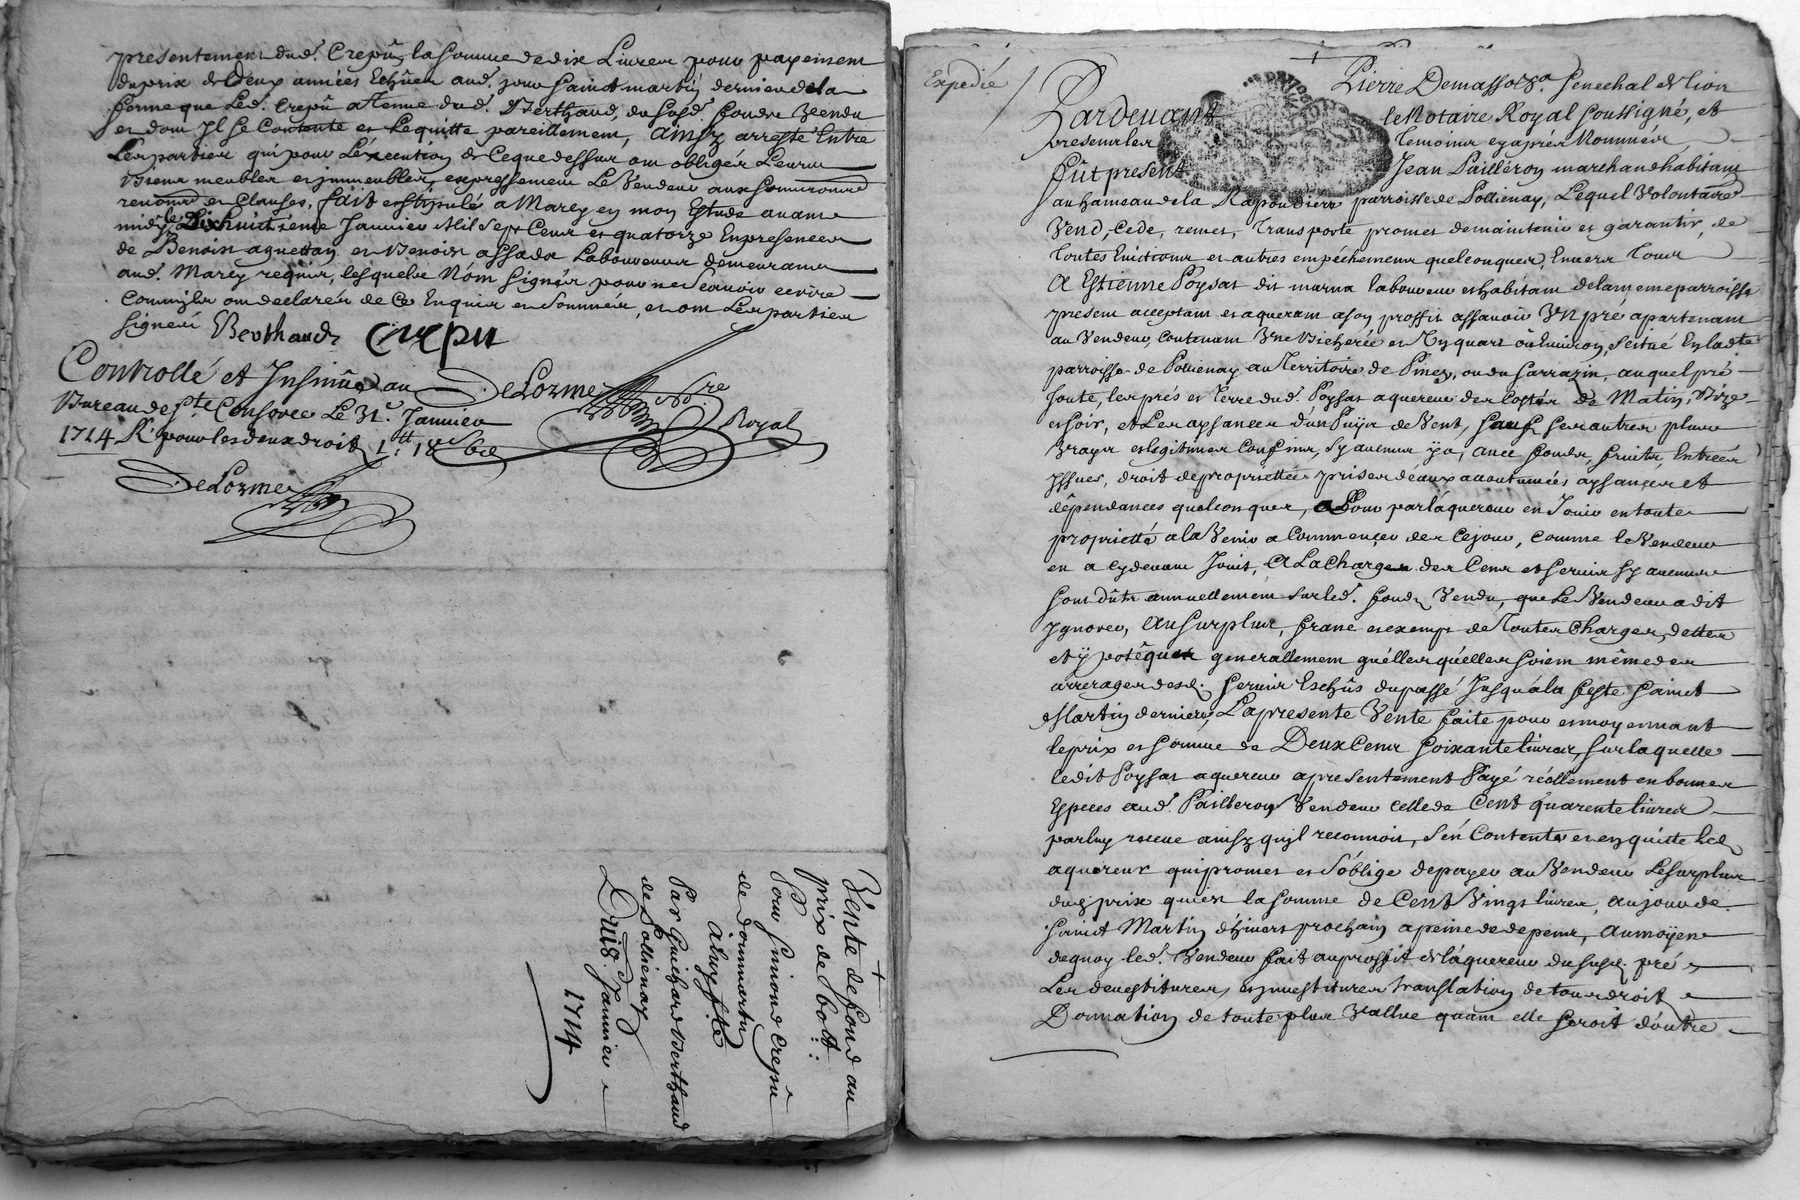 presentement dud. Crepu, la somme de dix Livres pour payement
du prix de deux années Echües aud. jour Saint martin dernier de la
ferme que Led. Crepu a Tenue dud. Berthaud, du susd. fondz Vendu
et dont Il se Contente et Le quitte pareillement, Ainsy arresté Entre
Les parties qui pour L'éxecution de Ce que dessus ont obligés Leurs
Biens meubles et immeubles, expressement Le Vendeur
renonce et Clauses, fait et stipulé a Marcy en mon Estude avant
midy le Dixhuitième Janvier Mil Sept Cent et quatorze En presence
de Benoist aguettan et Benoist assada Laboureurs demeurants
aud. Marcy requis, lesquels N'ont signés pour ne Scavoir ecrire
Comm'ils ont declarés de Ce Enquis et Sommés, et ont Les parties
signéés Berthaud Crepu
Controllé et Insinüé au
Bureau de Ste. Consorce Le 31e. Janvier
1714 R. pour les deux droit 1tt. 18s
DeLorme No.re
Royal
DeLorme
Vente de fond au
prix de 60tt.
Pour Simond Crepu
de dommartin
Par Guichard Berthaud
de Pollienay
Du 18. Janvier
1714
Expedié
Pierre Demassos Senechal de Lion
Pardevant le Notaire Royal Soussigné, et
presents les Temoins cy aprés Nommés
fût present Jean Pailléron marchand habitant
au hameau de la Rapoudiere parroisse de Pollienay, Lequel Volontaire
Vend, Cede, remet, Transporte promet de maintenir et garantir, de
Toutes Evictions et autres empéchements quelconques, Envers Tous
A Estienne Poysat dit marna laboureur et habitant de la meme parroisse
present acceptant et aquerant a son proffit assavoir Un pré apartenant
au Vendeur, Contenant Une Bicherée et Un quart ou Environ, scitué En ladte
parroisse de Pollienay au Territoire de Pinez, ou du Sarrazin, auquel pré
Joute, les prés et Terre dud. Poysat aquereur des Costés de Matin, Bize
et soir, et Les aysances d'un Puys de Vent, Sauf ses autres plus
Vrays et legitimes Confins, Sy aucuns y a, avec fonds, fruits, Entréés
Issues, droit de proprietté prises d'eaux accoutumés aysances et
dépendances quelconques, Pour par l'aquereur en Jouir en toute
proprietté a la Venir a Commencer des Ce jour, Comme le Vendeur
en a Cy devant Jouit, A La Charge des Cens et Servis sy aucuns
sont dûts annuellement sur led. fondz Vendu, que Le Vendeur a dit
Ignorer, Au Surplus, franc et exempt de Toutes Charges, dettes
et ypotéques generallement quélles quélles soient même des
arrerages desd. Servis Eschûs du passé Jusqu'à la feste Saint
Martin dernier, La presente Vente faite pour et moyennant
le prix et somme de Deux Cent Soixante livres, sur laquelle
ledit Poysat aquereur a presentement Payé réellement en bonnes
Especes aud. Pailleron Vendeur celle de Cent quarente livres
par luy receue ainsy qu'il reconnoit, s'en Contente et en quitte led.
aquereur qui promet et s'oblige de payer au Vendeur Le surplus
dud. prix qui est la somme de Cent Vingt livres, au jour de
Saint Martin d'hivert prochain a peine de depens, Au moyen
de quoy led. Vendeur fait au proffit de l'aquereur du susd. pré
Les devestitures, et investitures translation de tous droit
Donnation de toute plus Vallue quant elle seroit d'outre